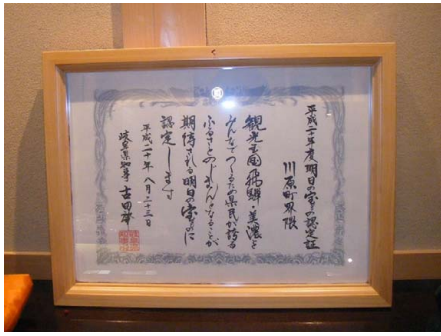 平成二十年度明日の宝もの認定証
川原町界隈
観光王国飛騨・美濃を
みんなでつくるため県民が誇る
ふるさとのじまんとなることが
期待される明日の宝ものに
認定します
平成二十年八月二十三日
岐阜県知事 古田肇